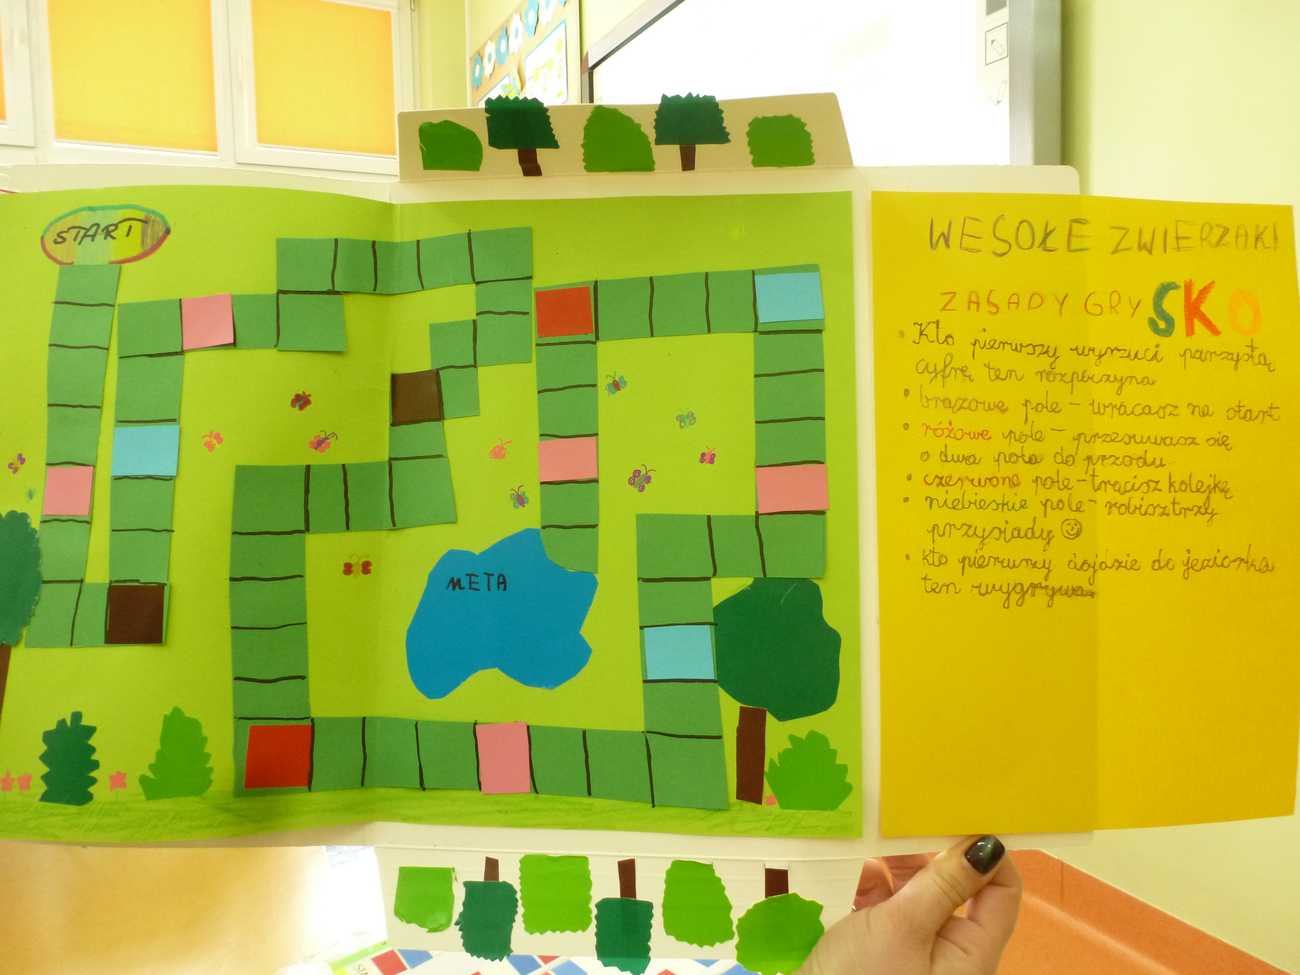 START
META
WESOŁE ZWIERZAKI
ZASADY GRY SKO
• Kto pierwszy wyrzuci parzystą
cyfrę ten rozpoczyna
• brązowe pole - wracasz na start
• różowe pole - przesuwasz się
o dwa pola do przodu
• czerwone pole - tracisz kolejkę
• niebieskie pole - robisz trzy
przysiady ☺
• kto pierwszy dojdzie do jeziorka
ten wygrywa.